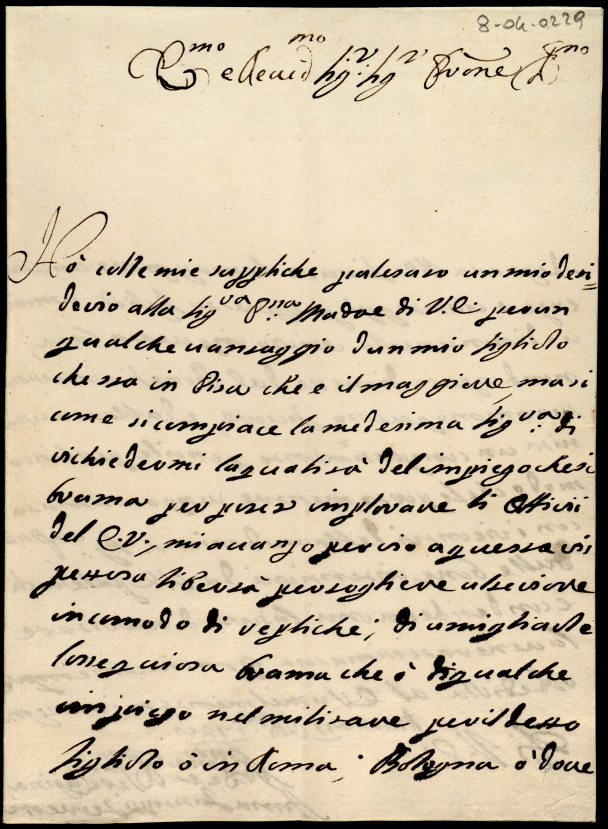 8-04-0229
Em.mo e Reve.mo Sig.r Sig.r P̃rone Col.mo
Hò colle mie suppliche palesato un mio desi=
derio alla Sig.ra P.na Madre di V.E. per un
qualche vantaggio d'un mio figliolo
che sta in Pisa che e il maggiore, ma si
come si compiace la medesima Sig.ra di
richiedermi la qualità del impiego che si
brama per poter implorare li Officii
del E.V., mi avanzo per ciò a questa ris
pettosa libertà per togliere ulteriore
incomodo di repliche; di umigliarle
l'ossequiosa brama che è di qualche
impiego nel militare per il detto
figliolo ò in Roma, Bologna ò dove